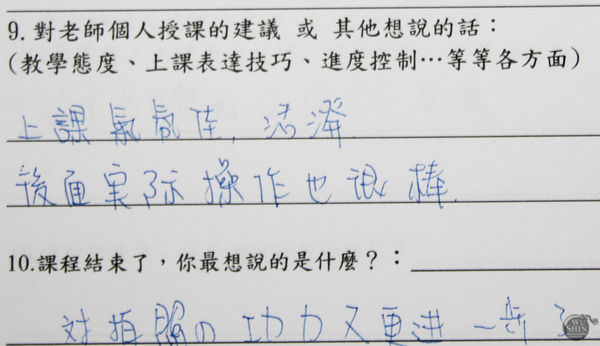 9. 對老師個人授課的建議 或 其他想說的話：
(教學態度、上課表達技巧、進度控制…等等各方面)
上課氣氛佳, 活潑
後面実际操作也很棒.
10.課程結束了，你最想說的是什麼？：
对拍照の功力又更进一步了
WU SHIN